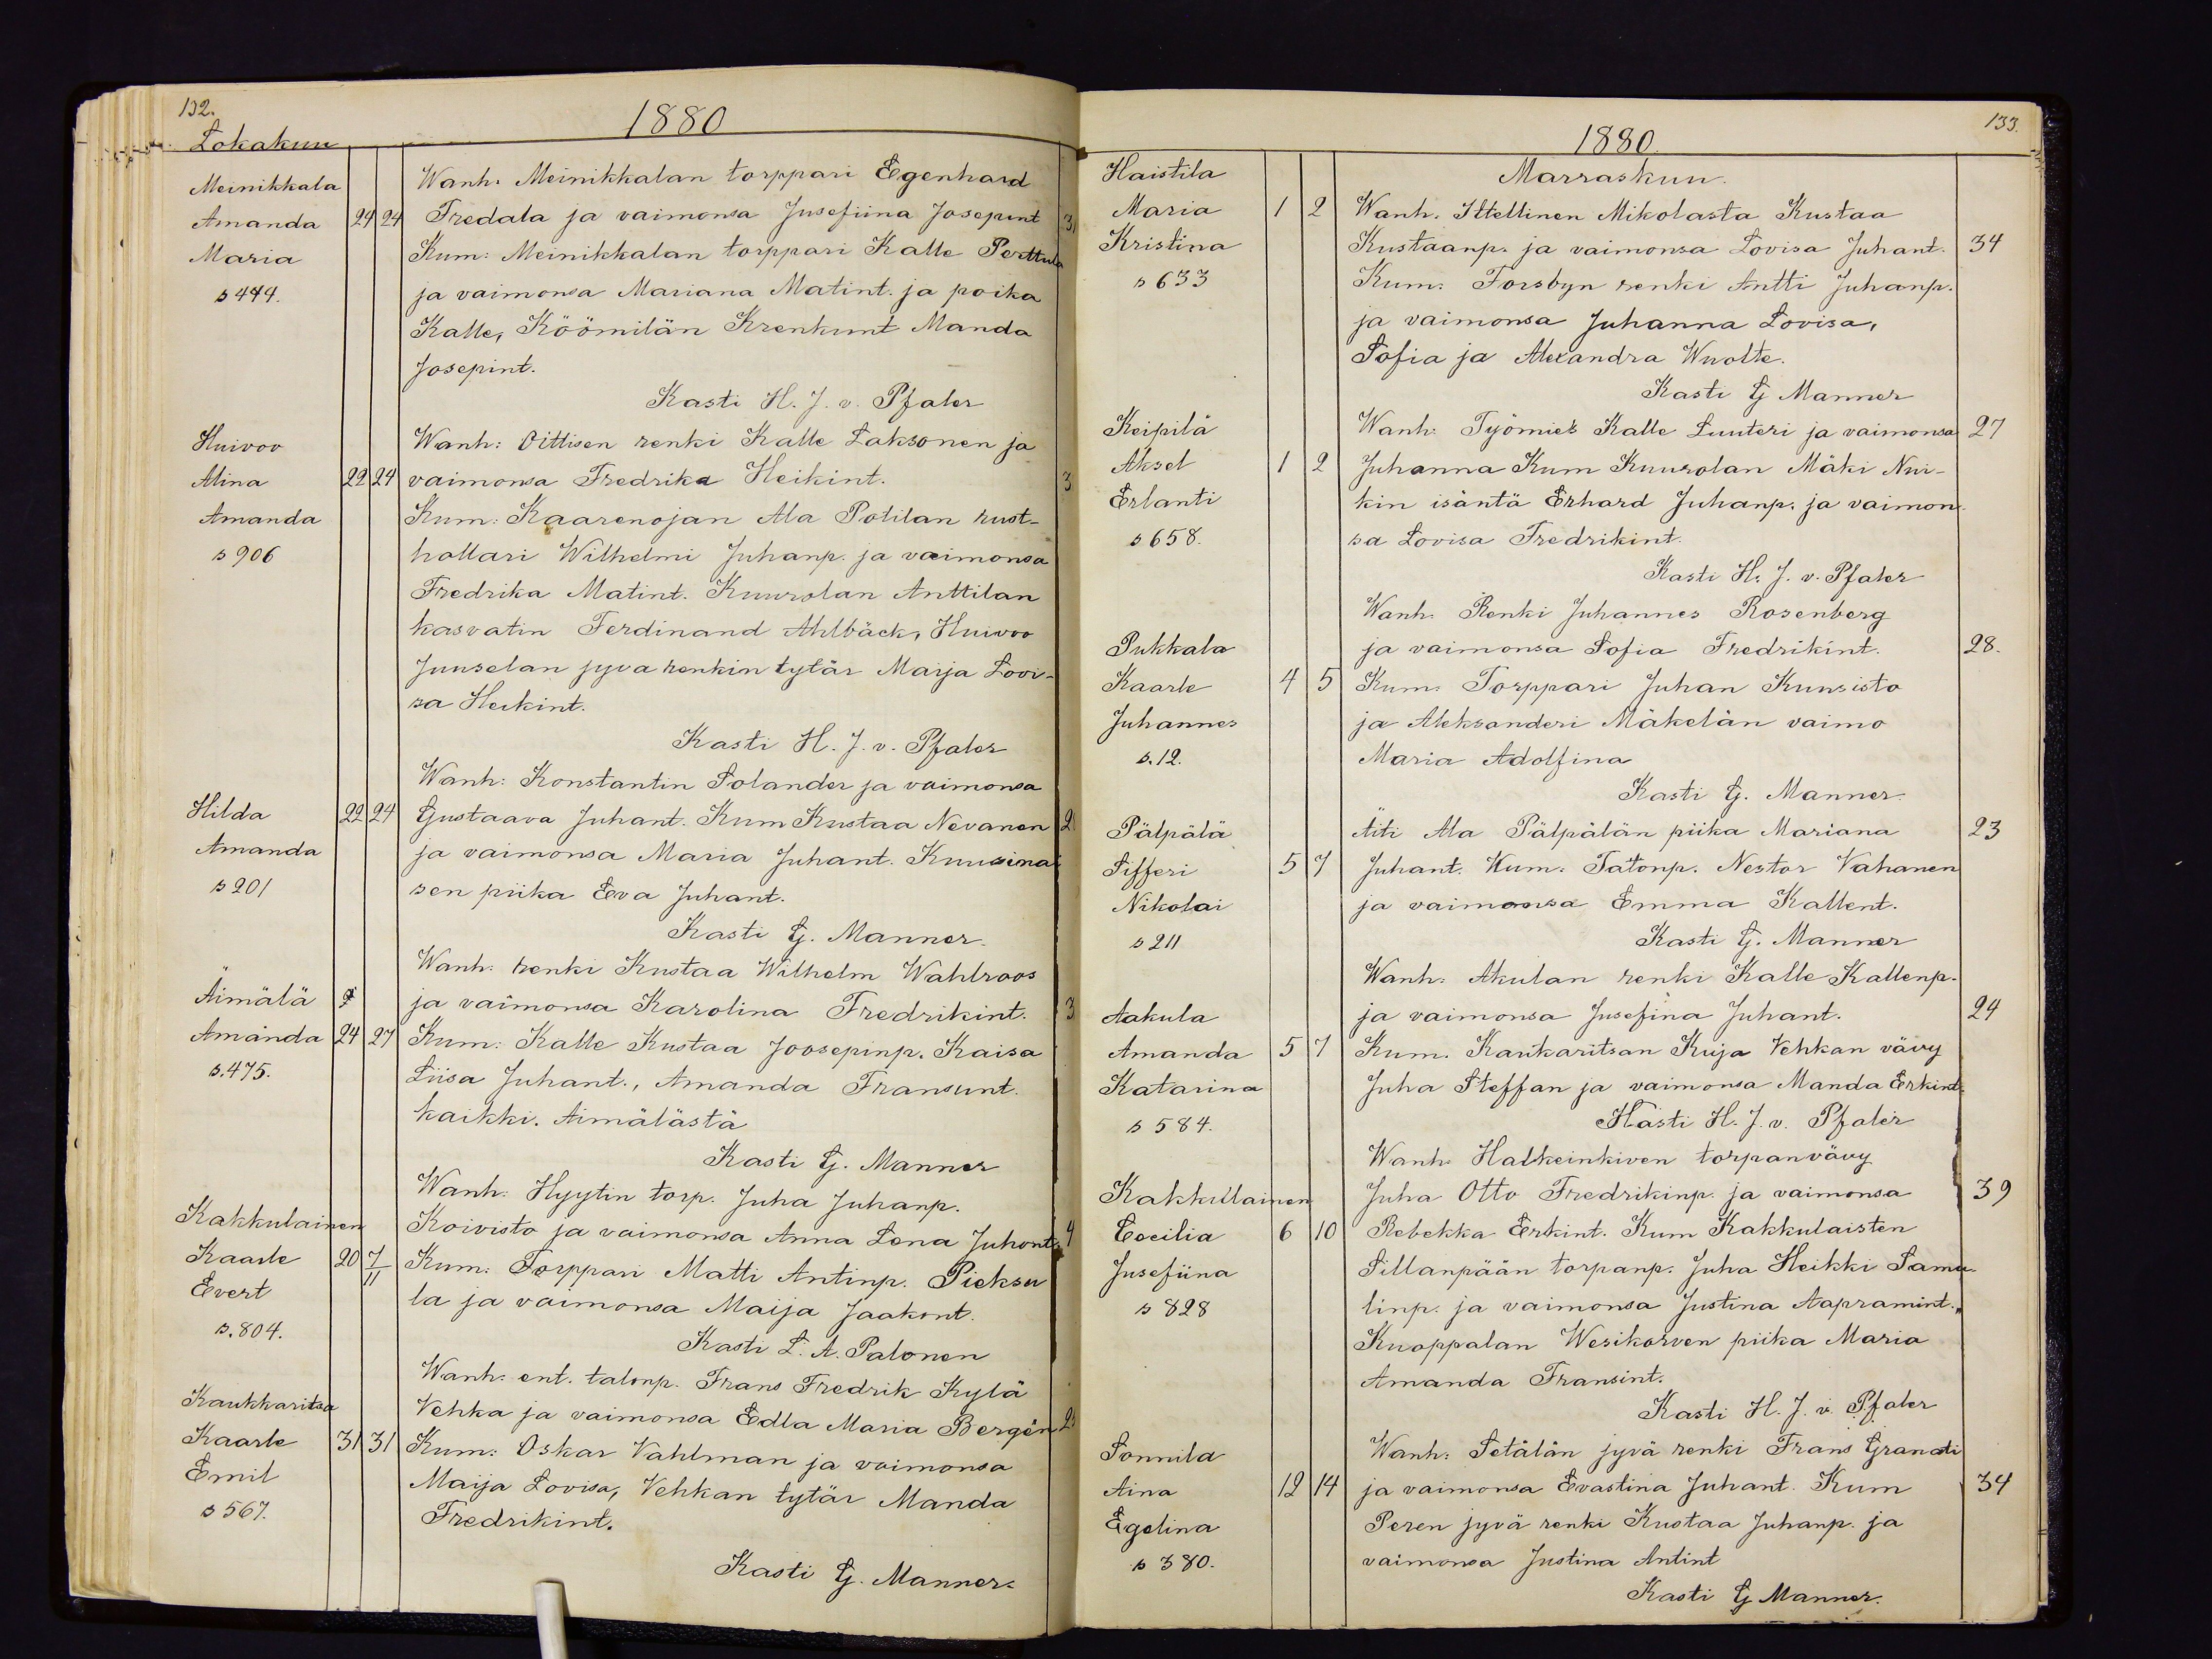 132.
1880
Lokakuu
Meinikkala
Amanda 24 24
Maria
s 444.
Wanh. Meinikkalan torppari Egenhard
Fredala ja vaimonsa Jusefiina Josepint 31
Kum: Meinikkalan torppari Kalle Perttula
ja vaimonsa Mariana Matint. ja poika
Kalle, Köömilän Krenkunt Manda
Josepint.
Kasti H. J. v. Pfaler
Huivoo
Alina 22 24
Amanda
s 906
Wanh: Oittisen renki Kalle Laksonen ja
vaimonsa Fredrika Heikint. 3
Kum: Kaarenojan Ala Potilan rust-
hollari Wilhelmi Juhanp. ja vaimonsa
Fredrika Matint. Kuurolan Anttilan
kasvatin Ferdinand Ahlbäck, Huivoo
Juuselan jyva renkin tytär Maija Lovi-
sa Heikint.
Kasti H. J. v. Pfaler
Hilda 22 24
Amanda
s 201
Wanh: Konstantin Solander ja vaimonsa
Gustaava Juhant. Kum Kustaa Nevanen 2
ja vaimonsa Maria Juhant. Kuusinai
sen piika Eva Juhant.
Kasti G. Manner.
Äimälä
Amanda 24 27
s. 475.
Wanh: renki Kustaa Wilhelm Wahlroos
ja vaimonsa Karolina Fredrikint. 3
Kum: Kalle Kustaa Joosepinp. Kaisa
Liisa Juhant., Amanda Fransunt.
kaikki. Aimälästä
Kasti G. Manner
Kakkulainen
Kaarle 20 7/11
Evert
s. 804.
Wanh. Hyytin torp. Juha Juhanp.
Koivisto ja vaimonsa Anna Lena Juhont. 4
Kum: Torppari Matti Antinp. Pieksu
la ja vaimonsa Maija Jaakont.
Kasti L. A. Palonen
Kaukkaritsa
Kaarle 31 31
Emil
s 567.
Wanh: ent. talonp. Frans Fredrik Kylä
Vehka ja vaimonsa Edla Maria Bergén 2
Kum: Oskar Vahlman ja vaimonsa
Maija Lovisa, Vehkan tytär Manda
Fredrikint.
Kasti G. Manner.
133.
1880.
Marraskuu.
Haistila
Maria 1 2
Kristina
s 633
Wanh. Ittellinen Mikolasta Kustaa
Kustaanp. ja vaimonsa Lovisa Juhant. 34
Kum: Forsbyn renki Antti Juhanp.
ja vaimonsa Juhanna Lovisa,
Sofia ja Alexandra Wuolte.
Kasti G Manner
Keipilä
Aksel 1 2
Erlanti
s 658.
Wanh: Työmies Kalle Luuteri ja vaimonsa 27
Juhanna Kum Kuurolan Mäki Nui-
kin isäntä Erhard Juhanp. ja vaimon-
sa Lovisa Fredrikint.
Kasti H. J. v. Pfaler
Pukkala
Kaarle 4 5
Juhannes
s. 12.
Wanh. Renki Juhannes Rosenberg
ja vaimonsa Sofia Fredrikint. 28.
Kum: Torppari Juhan Kunsisto
ja Aleksanderi Mäkelän vaimo
Maria Adolfina
Kasti G. Manner.
Pälpälä
Sifferi 5 7
Nikolai
s 211
Äiti Ala Pälpälän piika Mariana 23
Juhant. Kum: Talonp. Nestor Vahanen
ja vaimonsa Emma Kallent.
Kasti G. Manner
Aakula
Amanda 5 7
Katarina
s 584.
Wanh. Akulan renki Kalle Kallenp.
ja vaimonsa Jusefina Juhant. 24
Kum. Kaukaritsan Kuja Vehkan vävy
Juha Steffan ja vaimonsa Manda Erkint.
Kasti H. J. v. Pfaler
Kakkullainen
Cecilia 6 10
Jusefiina
s 828
Wanh. Halkeinkiven torpanvävy
Juha Otto Fredrikinp. ja vaimonsa 39
Rebekka Erkint. Kum Kakkulaisten
Sillanpään torpanp. Juha Heikki Samu-
linp. ja vaimonsa Justina Aapramint.,
Kuoppalan Wesikorven piika Maria
Amanda Fransint.
Kasti H. J. v. Pfaler
Sonnila
Aina 12 14
Egelina
s 380.
Wanh: Setälän jyvä renki Frans Granati
ja vaimonsa Evastina Juhant. Kum 34
Peren jyvä renki Kustaa Juhanp. ja
vaimonsa Justina Antint
Kasti G Manner.